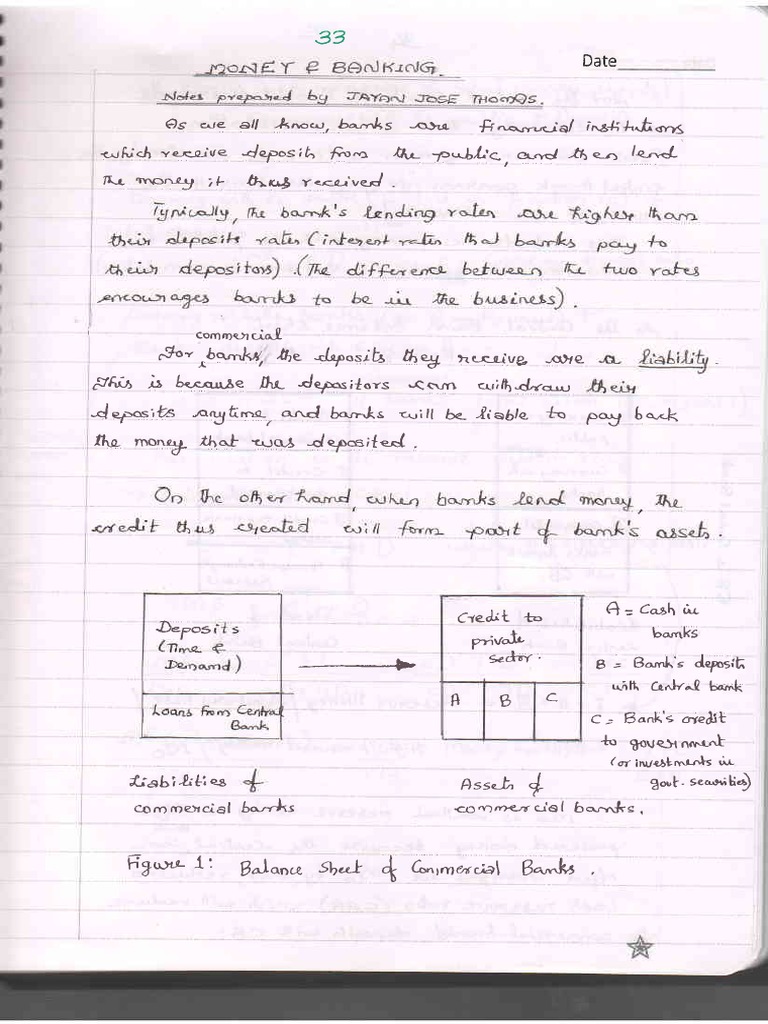 33
MONEY & BANKING.
Date
Notes prepared by JAYAN JOSE THOMAS.
As we all know, banks are financial institutions
which receive deposits from the public, and then lend
the money it thus received.
Typically, the bank's lending rates are higher than
their deposits rates (interest rates that banks pay to
their depositors). (The difference between the two rates
encourages banks to be in the business).
For commercial banks, the deposits they receive are a liability.
This is because the depositors can withdraw their
deposits anytime, and banks will be liable to pay back
the money that was deposited.
On the other hand, when banks lend money, the
credit thus created will form part of bank's assets.
Deposits
(Time &
Demand)
Loans from Central
Bank
Credit to
private
sector.
A
B
C
A = Cash in
banks
B = Bank's deposits
with Central bank
C = Bank's credit
to government
(or investments in
govt. securities)
Liabilities of
commercial banks
Assets of
commercial banks.
Figure 1: Balance Sheet of Commercial Banks.